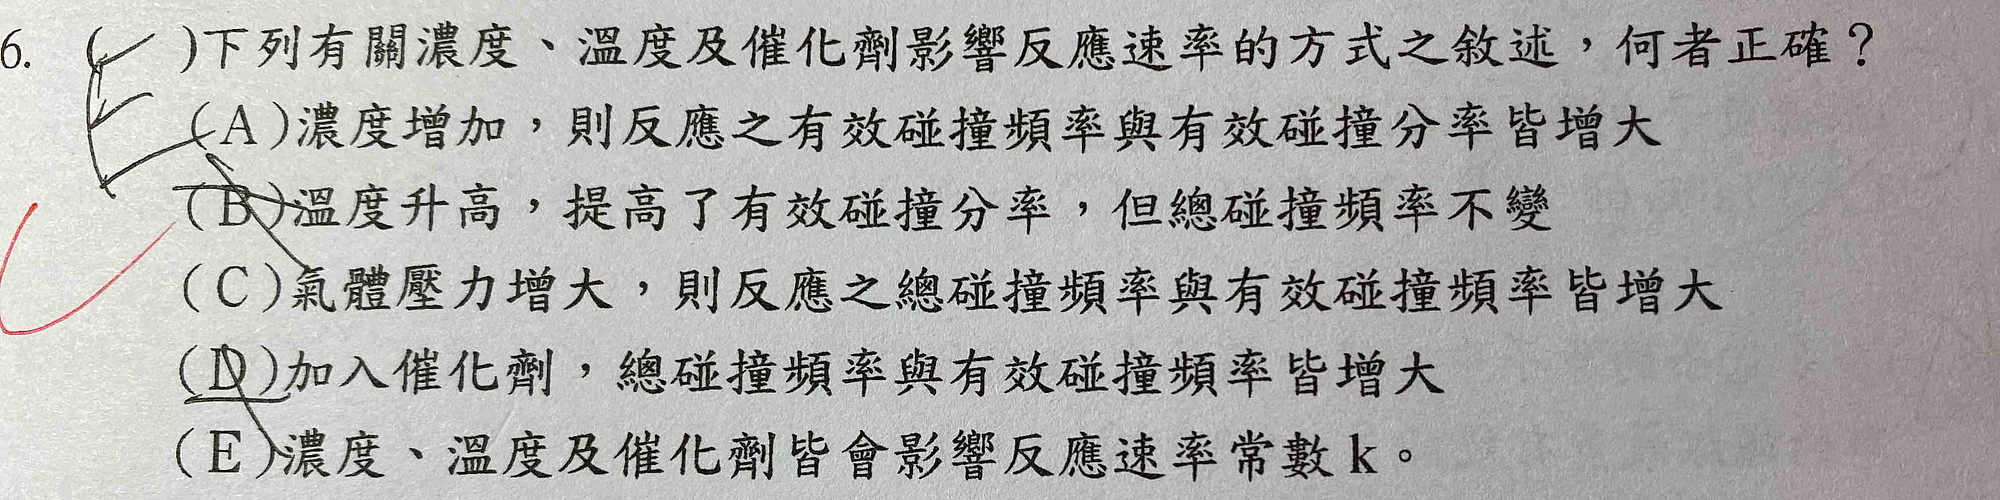 6. ( E )下列有關濃度、溫度及催化劑影響反應速率的方式之敘述，何者正確？
(A)濃度增加，則反應之有效碰撞頻率與有效碰撞分率皆增大
(B)溫度升高，提高了有效碰撞分率，但總碰撞頻率不變
(C)氣體壓力增大，則反應之總碰撞頻率與有效碰撞頻率皆增大
(D)加入催化劑，總碰撞頻率與有效碰撞頻率皆增大
(E)濃度、溫度及催化劑皆會影響反應速率常數k。